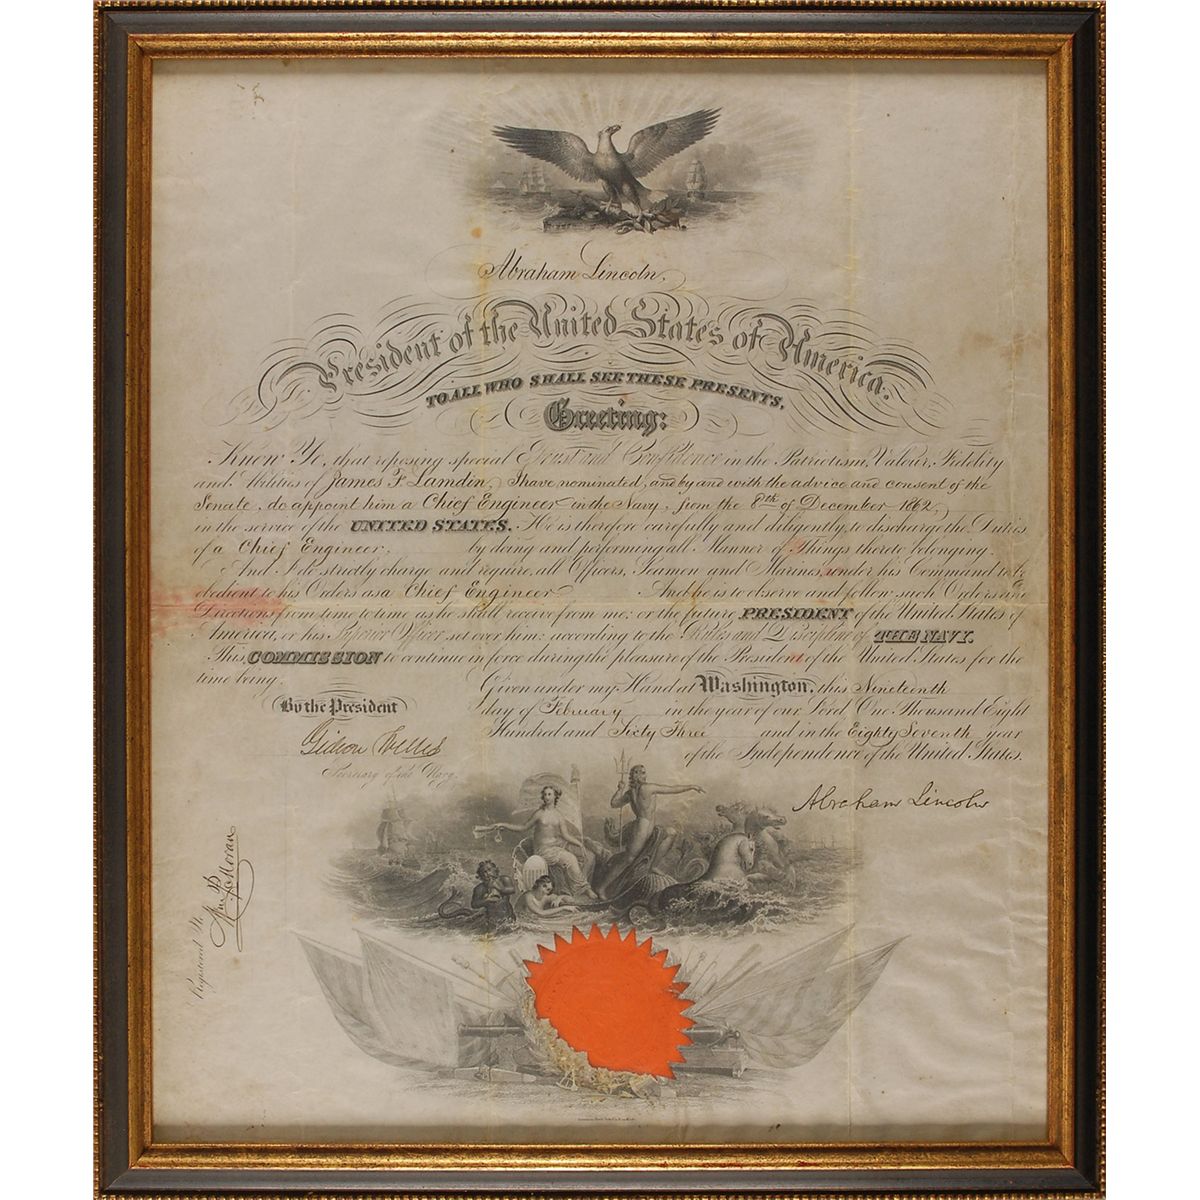 Abraham Lincoln,
President of the United States of America.
TO ALL WHO SHALL SEE THESE PRESENTS,
Greeting:
Know Ye, that reposing special Trust and Confidence in the Patriotism, Valour, Fidelity
and Abilities of James F Lamdin, I have nominated, and by and with the advice and consent of the
Senate, do appoint him a Chief Engineer in the Navy, from the 8th of December 1862,
in the service of the UNITED STATES. He is therefore carefully and diligently to discharge the Duties
of a Chief Engineer, by doing and performing all Manner of Things thereto belonging.
And I do strictly charge and require all Officers, Seamen and Marines, under his Command to be
obedient to his Orders as a Chief Engineer And he is to observe and follow such Orders and
Directions from time to time as he shall receive from me, or the future PRESIDENT of the United States of
America, or his Superior Officer set over him, according to the Rules and Discipline of THE NAVY.
This COMMISSION to continue in force during the pleasure of the President of the United States for the
time being.
Given under my Hand at Washington, this Nineteenth
day of February in the year of our Lord One Thousand Eight
Hundred and Sixty Three and in the Eighty Seventh year
of the Independence of the United States.
By the President
Gideon Welles
Secretary of the Navy.
Abraham Lincoln
Registered